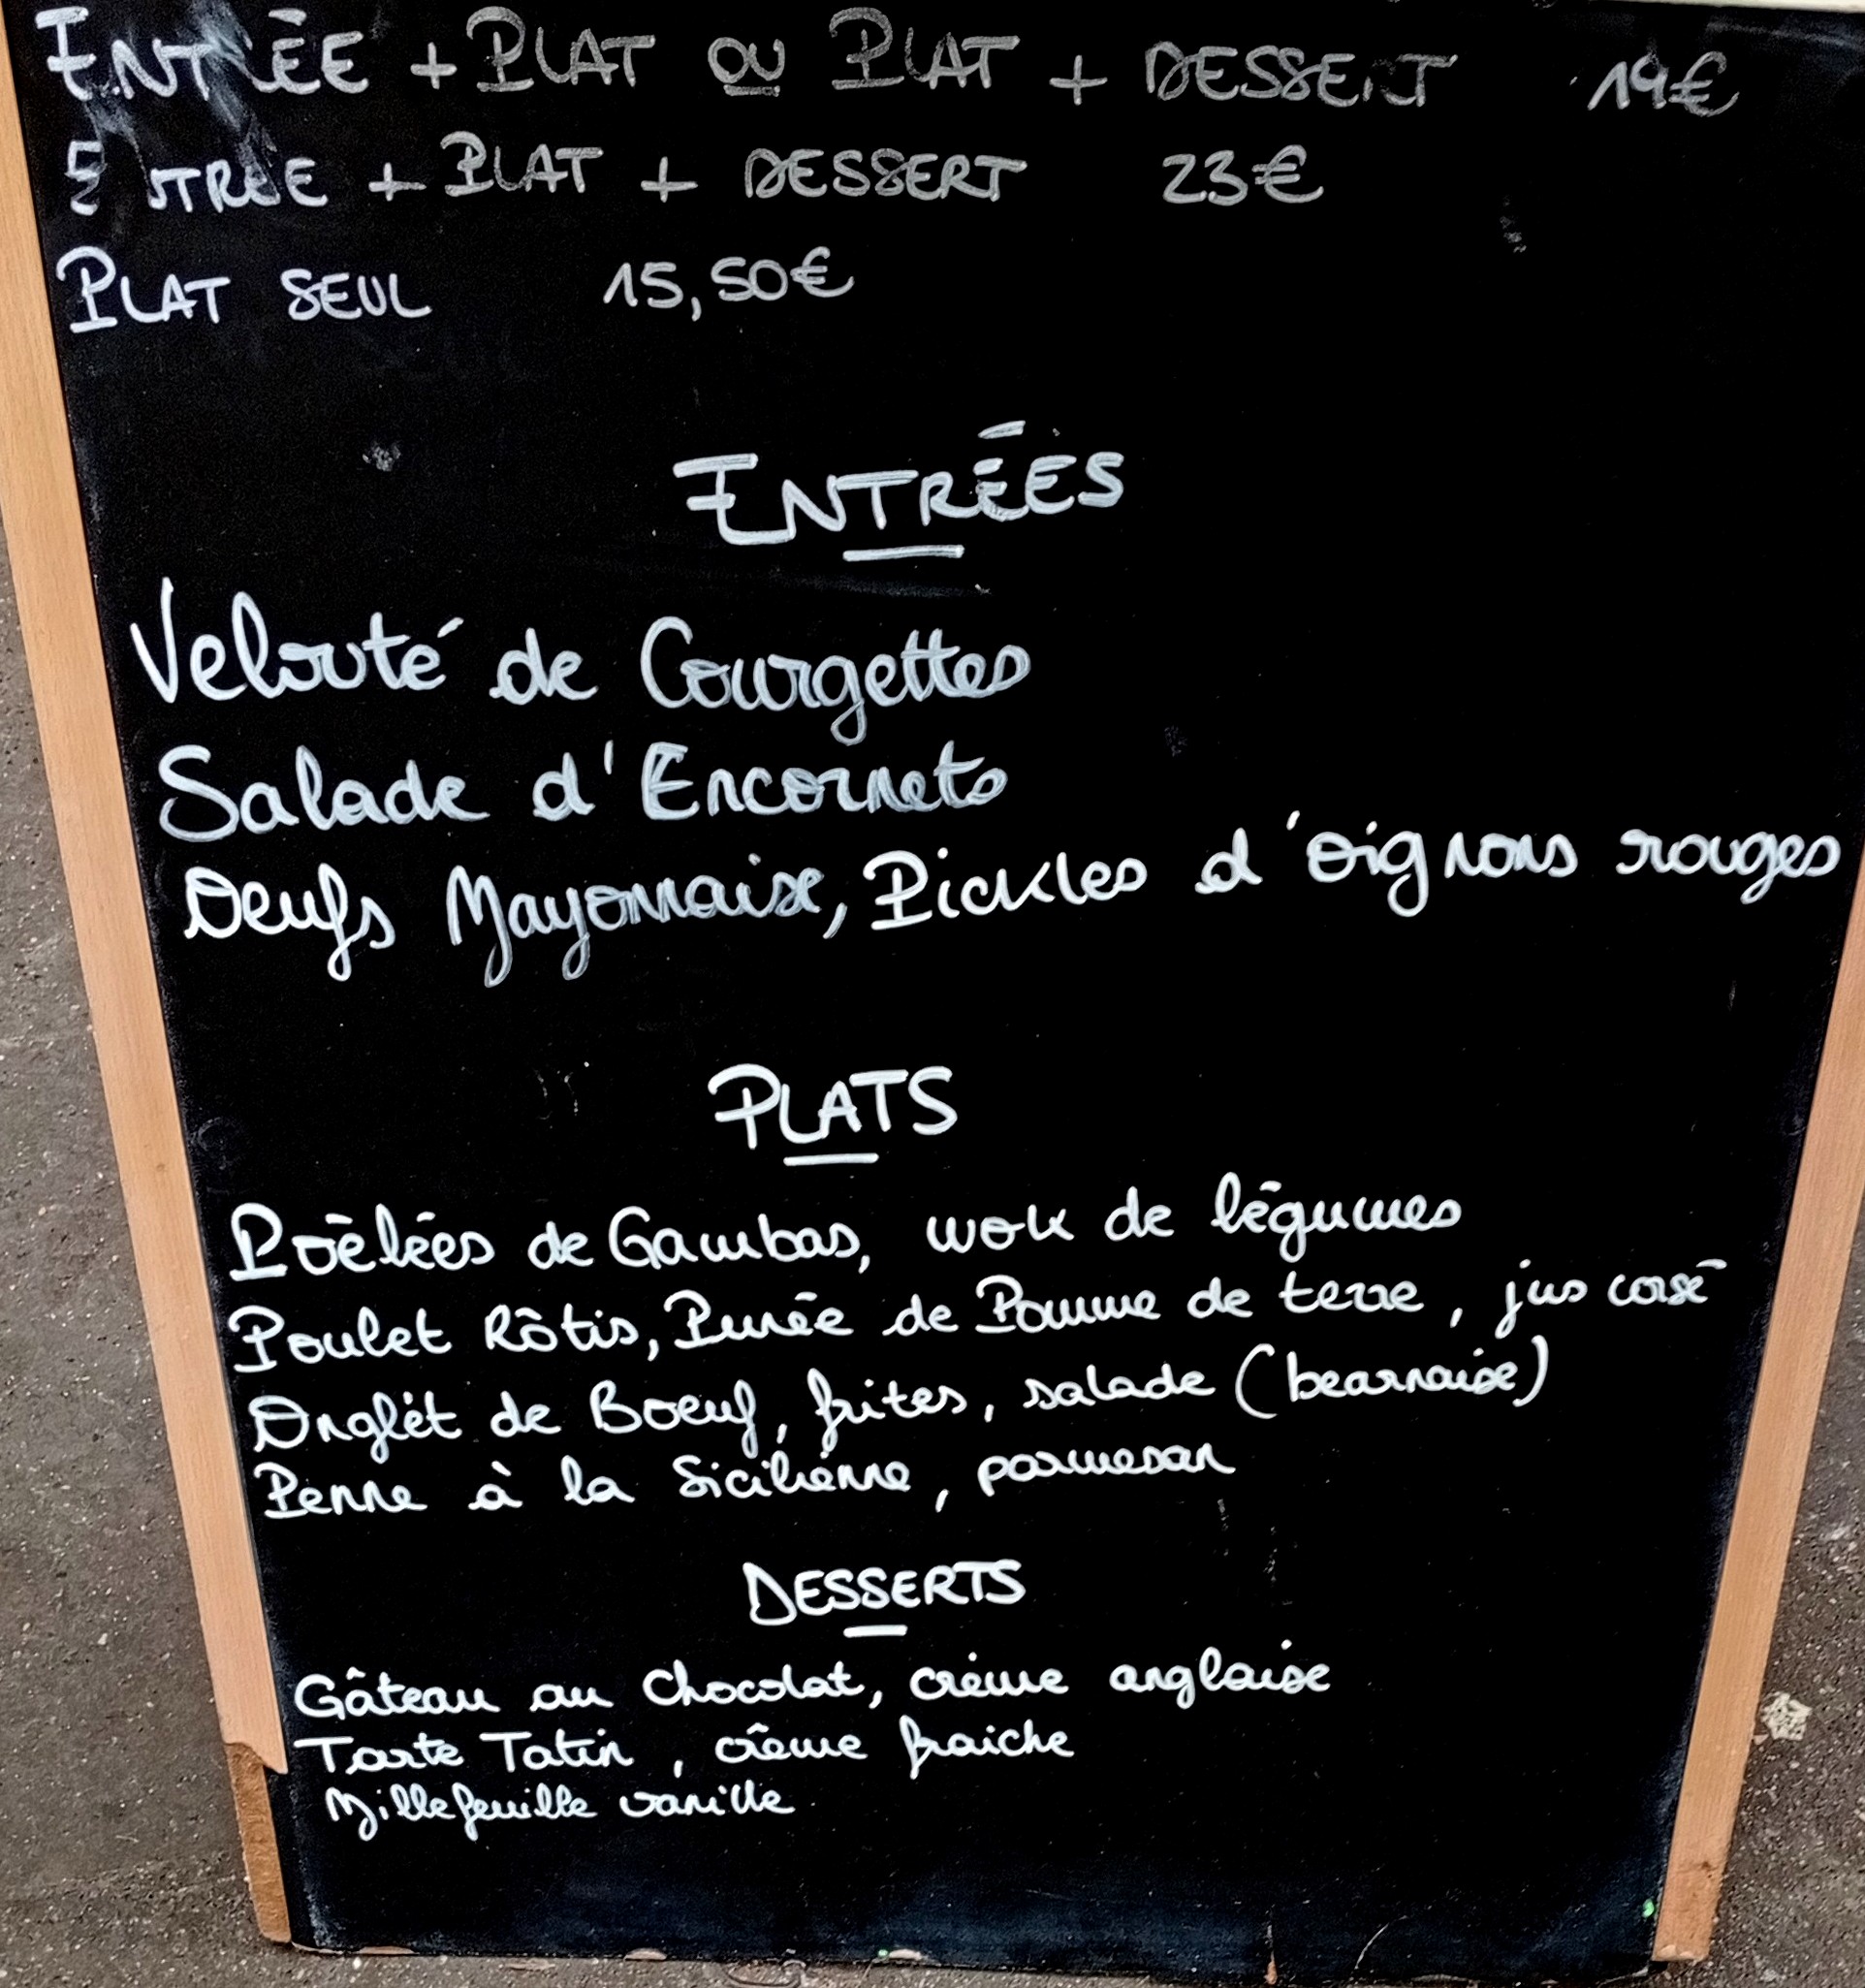 ENTRÉE + PLAT OU PLAT + DESSERT 19€
ENTRÉE + PLAT + DESSERT 23€
PLAT SEUL 15,50€
ENTRÉES
Velouté de Courgettes
Salade d'Encornets
Oeufs Mayonnaise, Pickles d'oignons rouges
PLATS
Poèlées de Gambas, wok de légumes
Poulet Rôtis, Purée de Pomme de terre, jus corsé
Onglet de Boeuf, frites, salade (bearnaise)
Penne à la Sicilienne, parmesan
DESSERTS
Gâteau au chocolat, crème anglaise
Tarte Tatin, crême fraiche
Millefeuille vanille